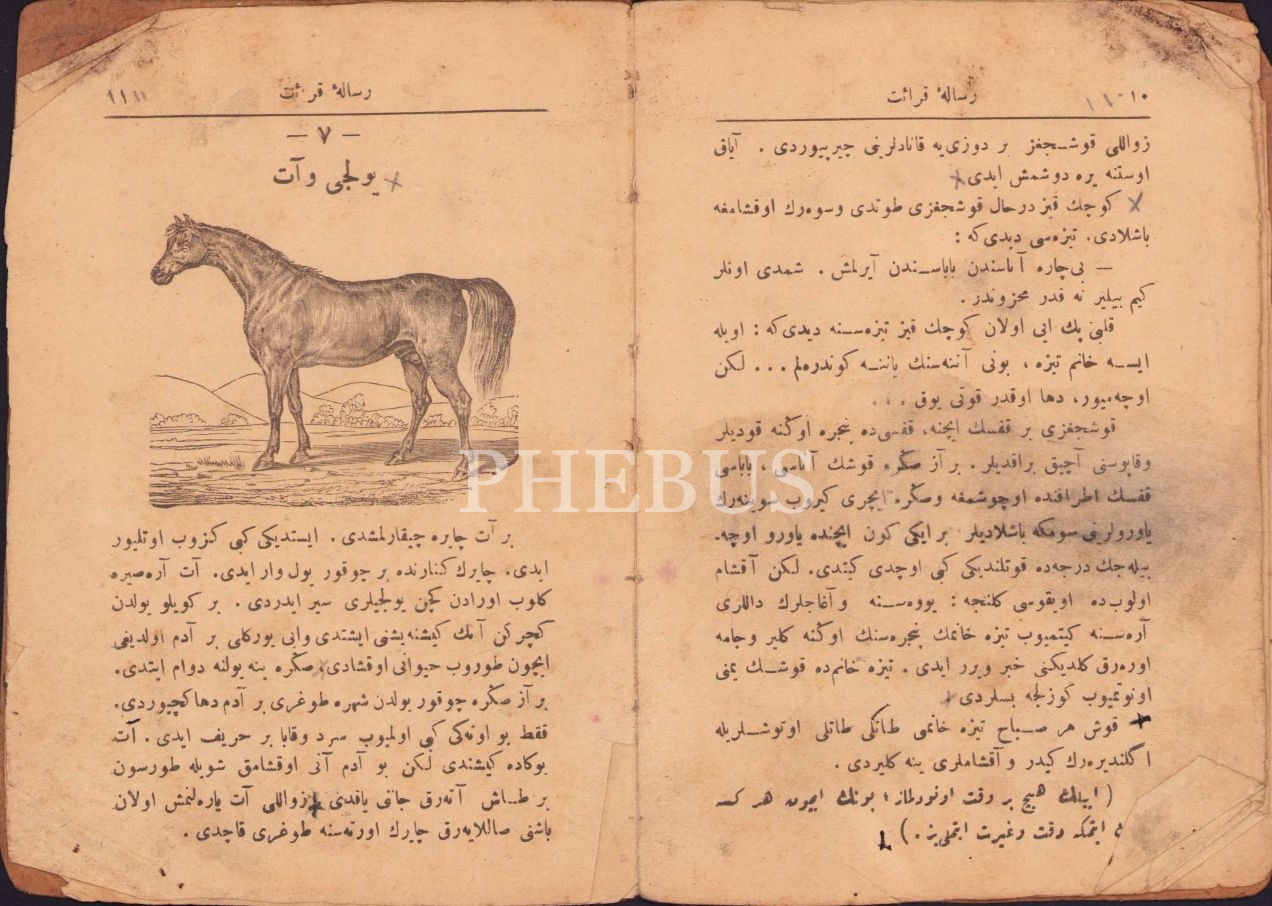 رسالهٔ قرائت
١٠
زواللی قوشجغز بر دوزی‌یه قانادلرینی چیرپیوردی . آیاق
اوستنه یره دوشمش ایدی
کوچك قیز درحال قوشجغزی طوتدی وسوه‌رك اوقشامغه
باشلادی. تیزه‌سی دیدی که :
— بی‌چاره آناسندن باباسندن آیرلمش . شمدی اونلر
کیم بیلیر نه قدر محزوندر .
قلبی پك ایی اولان کوچك قیز تیزه‌سنه دیدی‌که : اویله
ایسه خانم تیزه ، بونی آننه‌سنك یاننه کوندره‌لم . . . لکن
اوچه‌میور، دها اوقدر قوتی یوق . . .
قوشجغزی بر قفسك ایچنه، قفسی‌ده پنجره اوکنه قودیلر
وقاپوسنی آچیق براقدیلر . بر آز صکره قوشك آناسی ، باباسی
قفسك اطرافنده اوچوشمغه وصکره ایچری کیروب سوینه‌رك
یاورولرینی سومکه باشلادیلر بر ایکی کون ایچنده یاورو اوچه‌
بیله‌جك درجه‌ده قوتلندیکی کبی اوچدی کیتدی. لکن آقشام
اولوب‌ده اویقوسی کلنجه : یووه‌سنه و آغاجلرك داللری
آره‌سنه کیتمیوب تیزه خانمك پنجره‌سنك اوکنه کلیر وجامه
اوره‌رق کلدیکنی خبر ویرر ایدی . تیزه خانم‌ده قوشك یمنی
اونوتمیوب کوزلجه بسلردی
قوش هر صباح تیزه خانمی طاتلی طاتلی اوتوشلریله
اکلندیره‌رك کیدر و آقشاملری ینه کلیردی .
( ایيلك هیچ بر وقت اونودلماز ؛ بونك ایچون هر کسه
ایتمکه دقت وغیرت ایتملی‌یز . )
رسالهٔ قرائت
١١
— ٧ —
یولجی وآت
PHEBUS
بر آت چایره چیقارلمشدی . ایستدیکی کبی کزوب اوتلیور
ایدی. چایرك کنارنده بر چوقور یول وار ایدی. آت آره‌صیره
کلوب اورادن کچن یولجیلری سیر ایدردی . بر کویلو یولدن
کچرکن آتك کیشنه‌یشنی ایشتدی وایی یورکلی بر آدم اولدیغی
ایچون طوروب حیوانی اوقشادی، صکره ینه یولنه دوام ایتدی.
بر آز صکره چوقور یولدن شهره طوغری بر آدم دها کچیوردی.
فقط بو اوته‌کی کبی اولمیوب سرد وقابا بر حریف ایدی . آت
بوکاده کیشندی لکن بو آدم آنی اوقشامق شویله طورسون
بر طاش آته‌رق جانی یاقدی زواللی آت یاره‌لنمش اولان
باشنی صاللایه‌رق چایرك اورته‌سنه طوغری قاچدی .